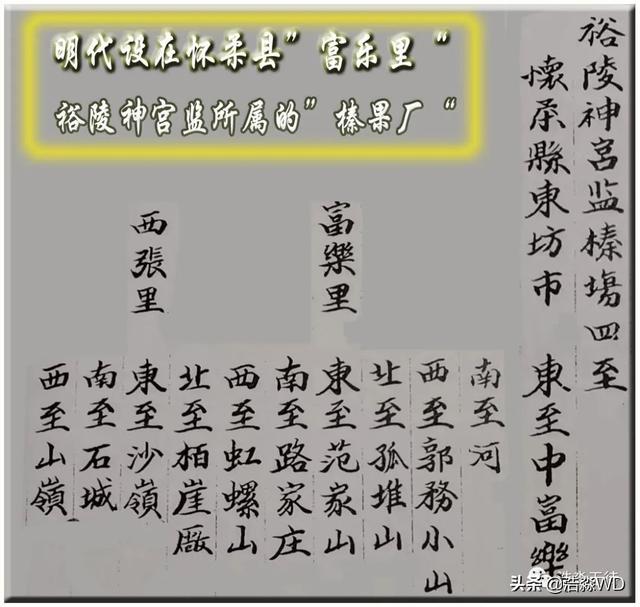 明代设在怀柔县”富乐里“
裕陵神宫监所属的”榛果厂“
裕陵神宫监榛塲四至
懷柔縣東坊市 東至中富樂
南至河
西至郭務小山
北至孤堆山
富樂里
東至范家山
南至路家庄
西至虹螺山
北至栢崖厰
西張里
東至沙嶺
南至石城
西至山嶺
头条 @浩淼WD